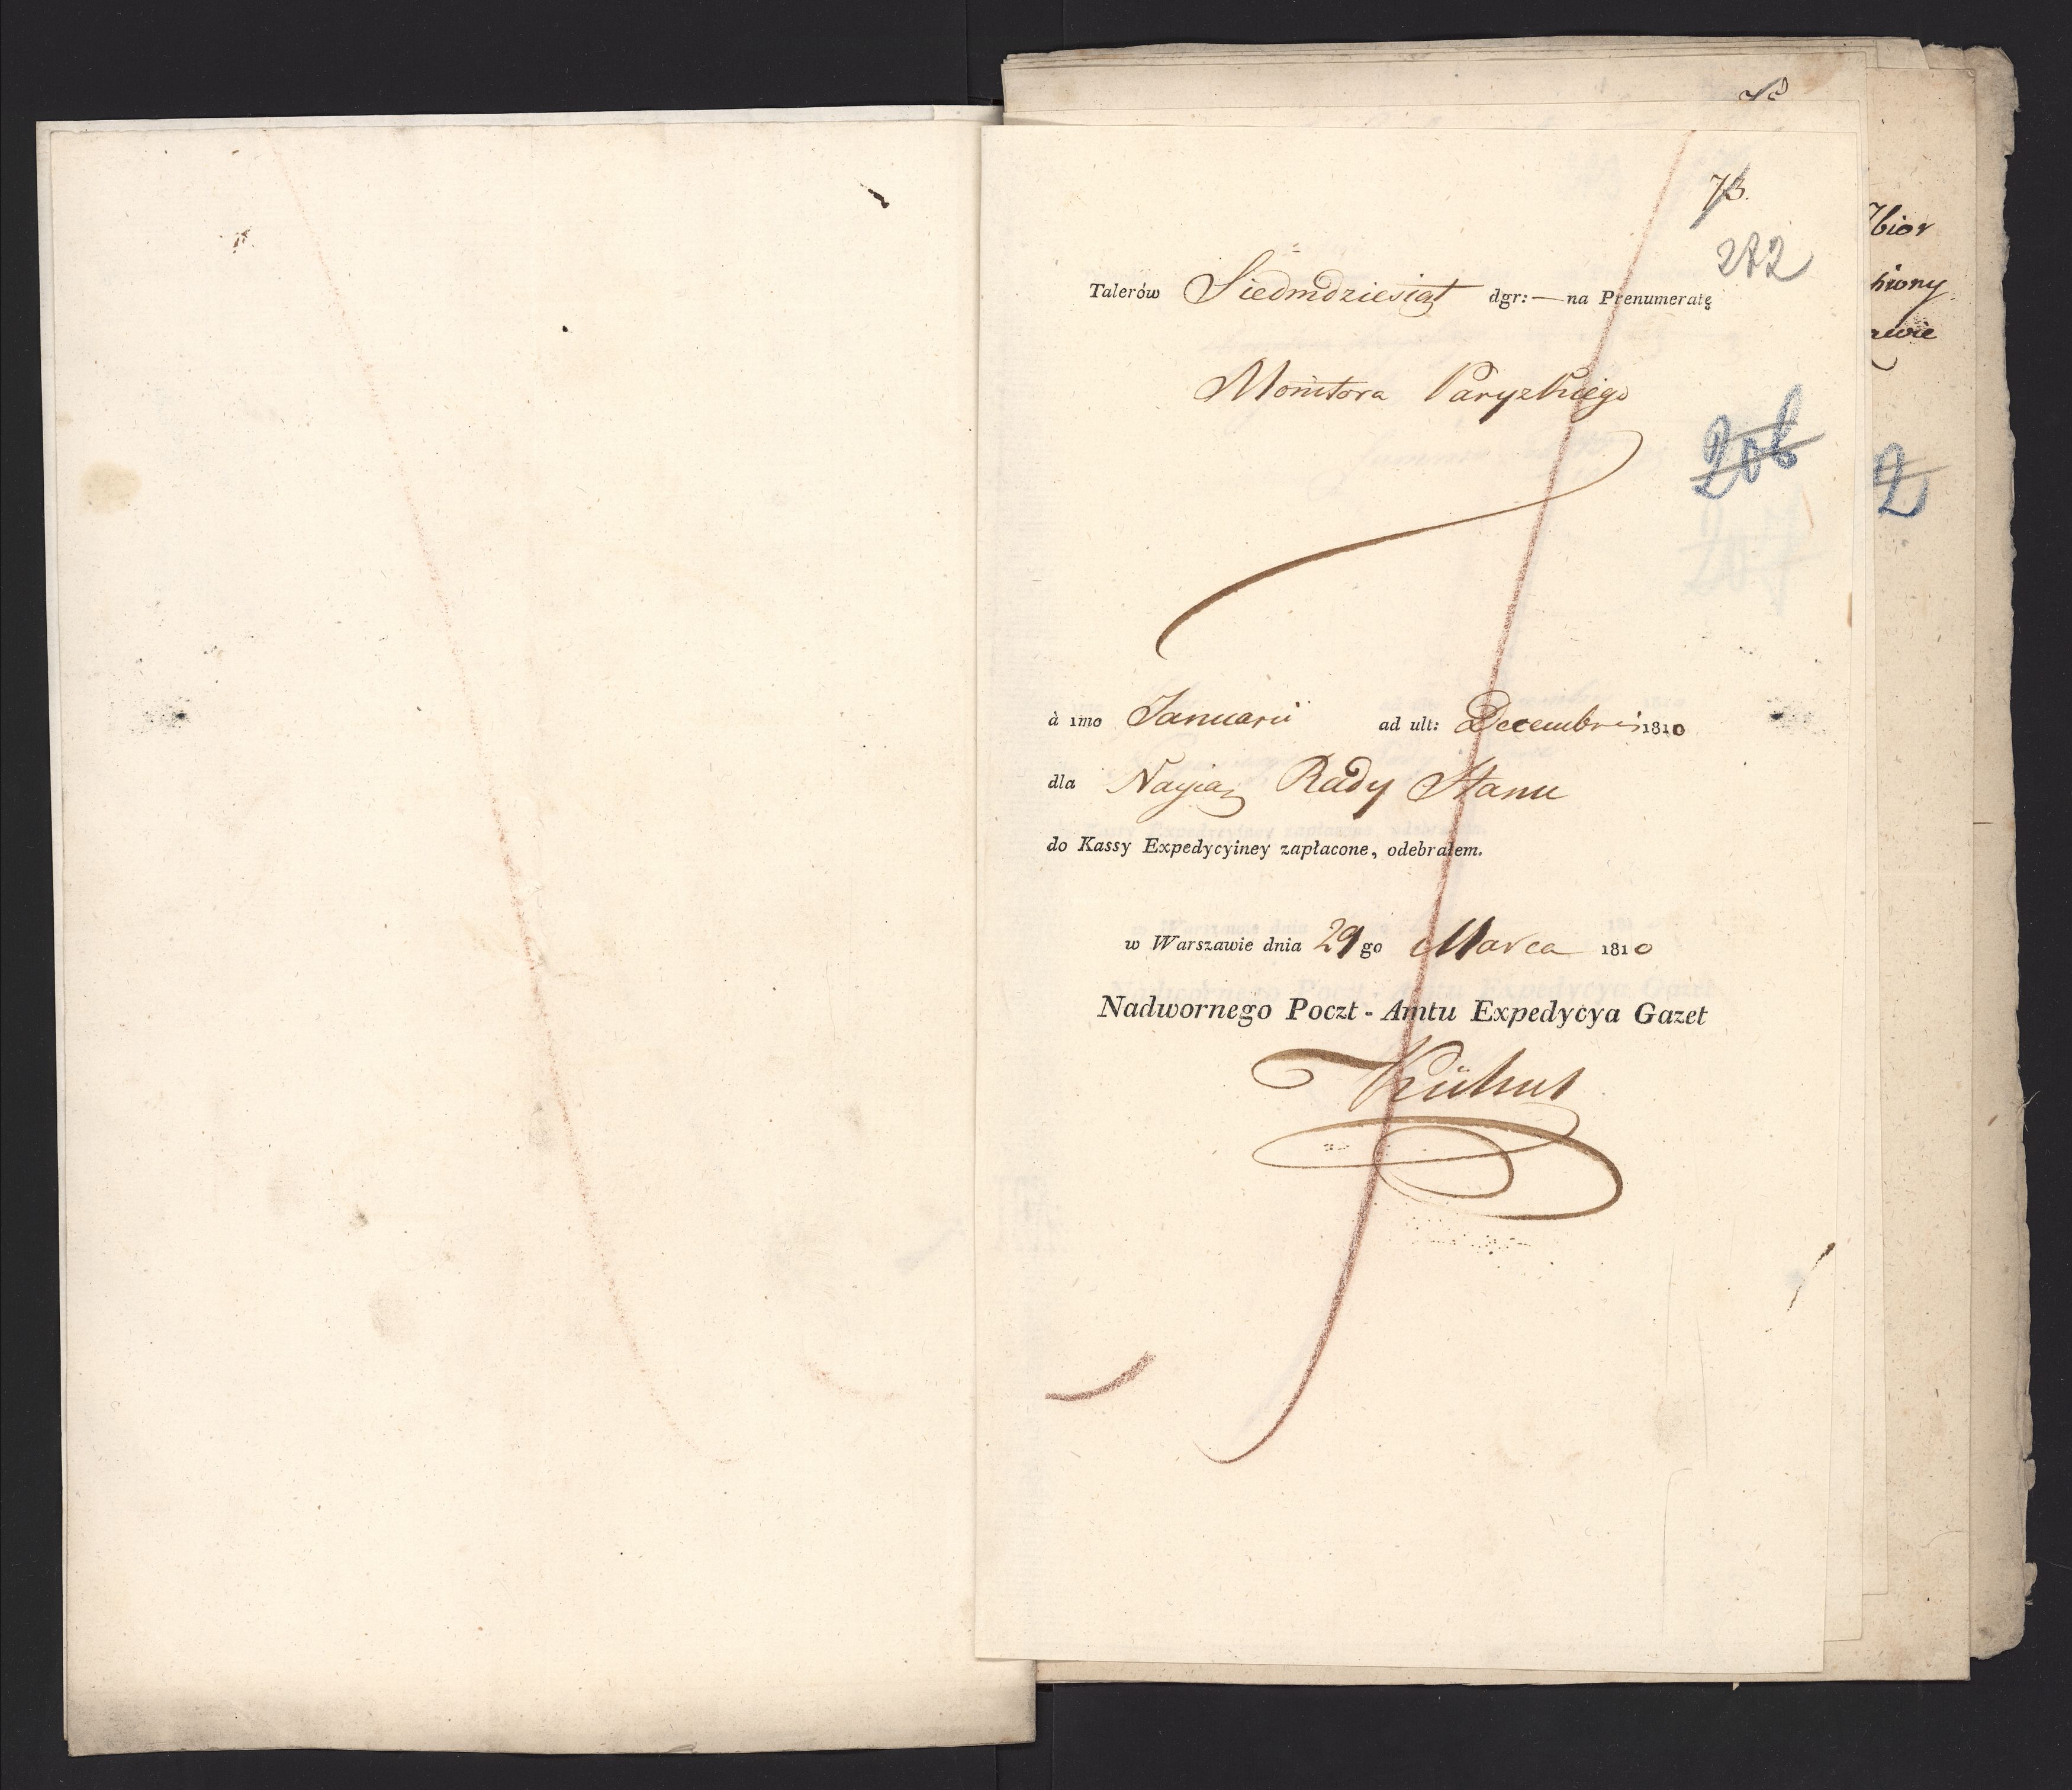 73.
272
Talerów Siedmdziesiąt dgr: — na Prenumeratę
Monitora Paryzkiego
206
207
à 1mo Januarii ad ult: Decembris 1810
dla Nayiaś Rady Stanu
do Kassy Expedycyiney zapłacone, odebrałem.
w Warszawie dnia 29go Marca 1810
Nadwornego Poczt - Amtu Expedycya Gazet
Zbior
awie
2